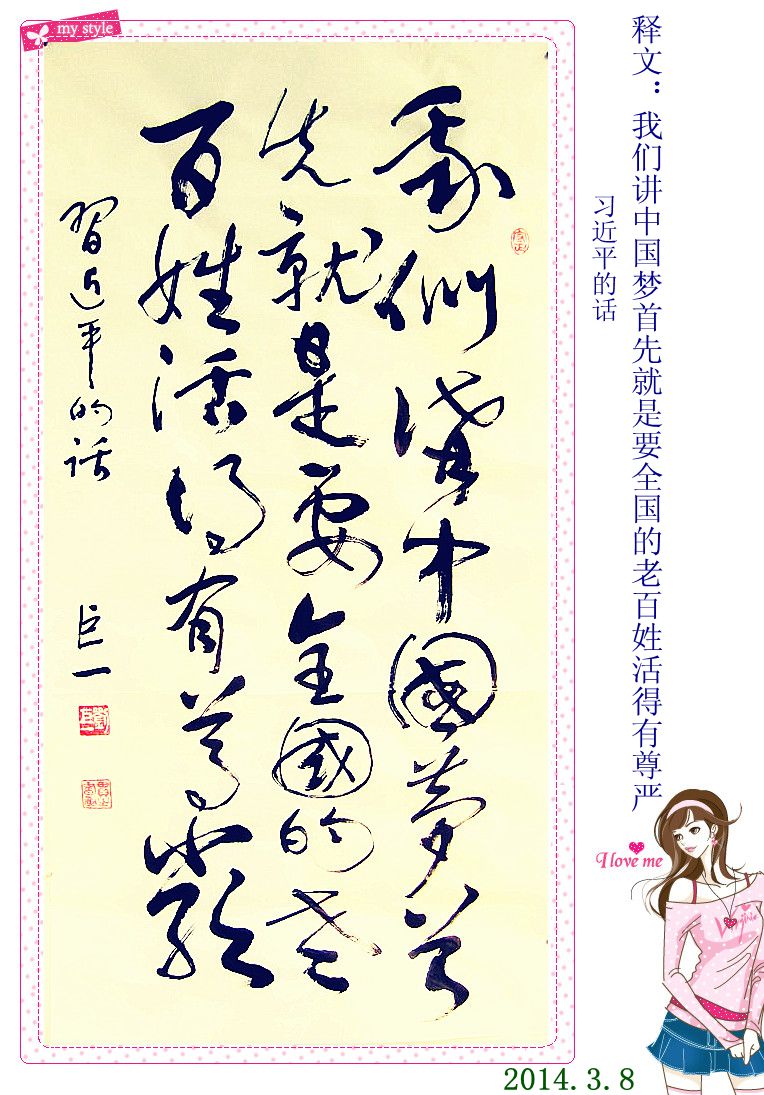 my style
釋文：我们讲中国梦首先就是要全国的老百姓活得有尊严
习近平的话
我们讲中國夢首
先就是要全國的老
百姓活得有尊嚴
習近平的话
巨一
I love me
2014.3.8